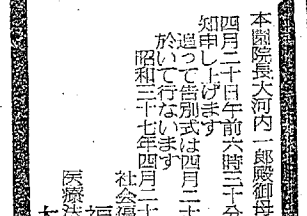 本園院長大河内一郎殿御母
四月二十日午前六時三十分
知申し上げます
追って告別式は四月二十
於いて行ないます
昭和三十七年四月二十
社会福
医療法